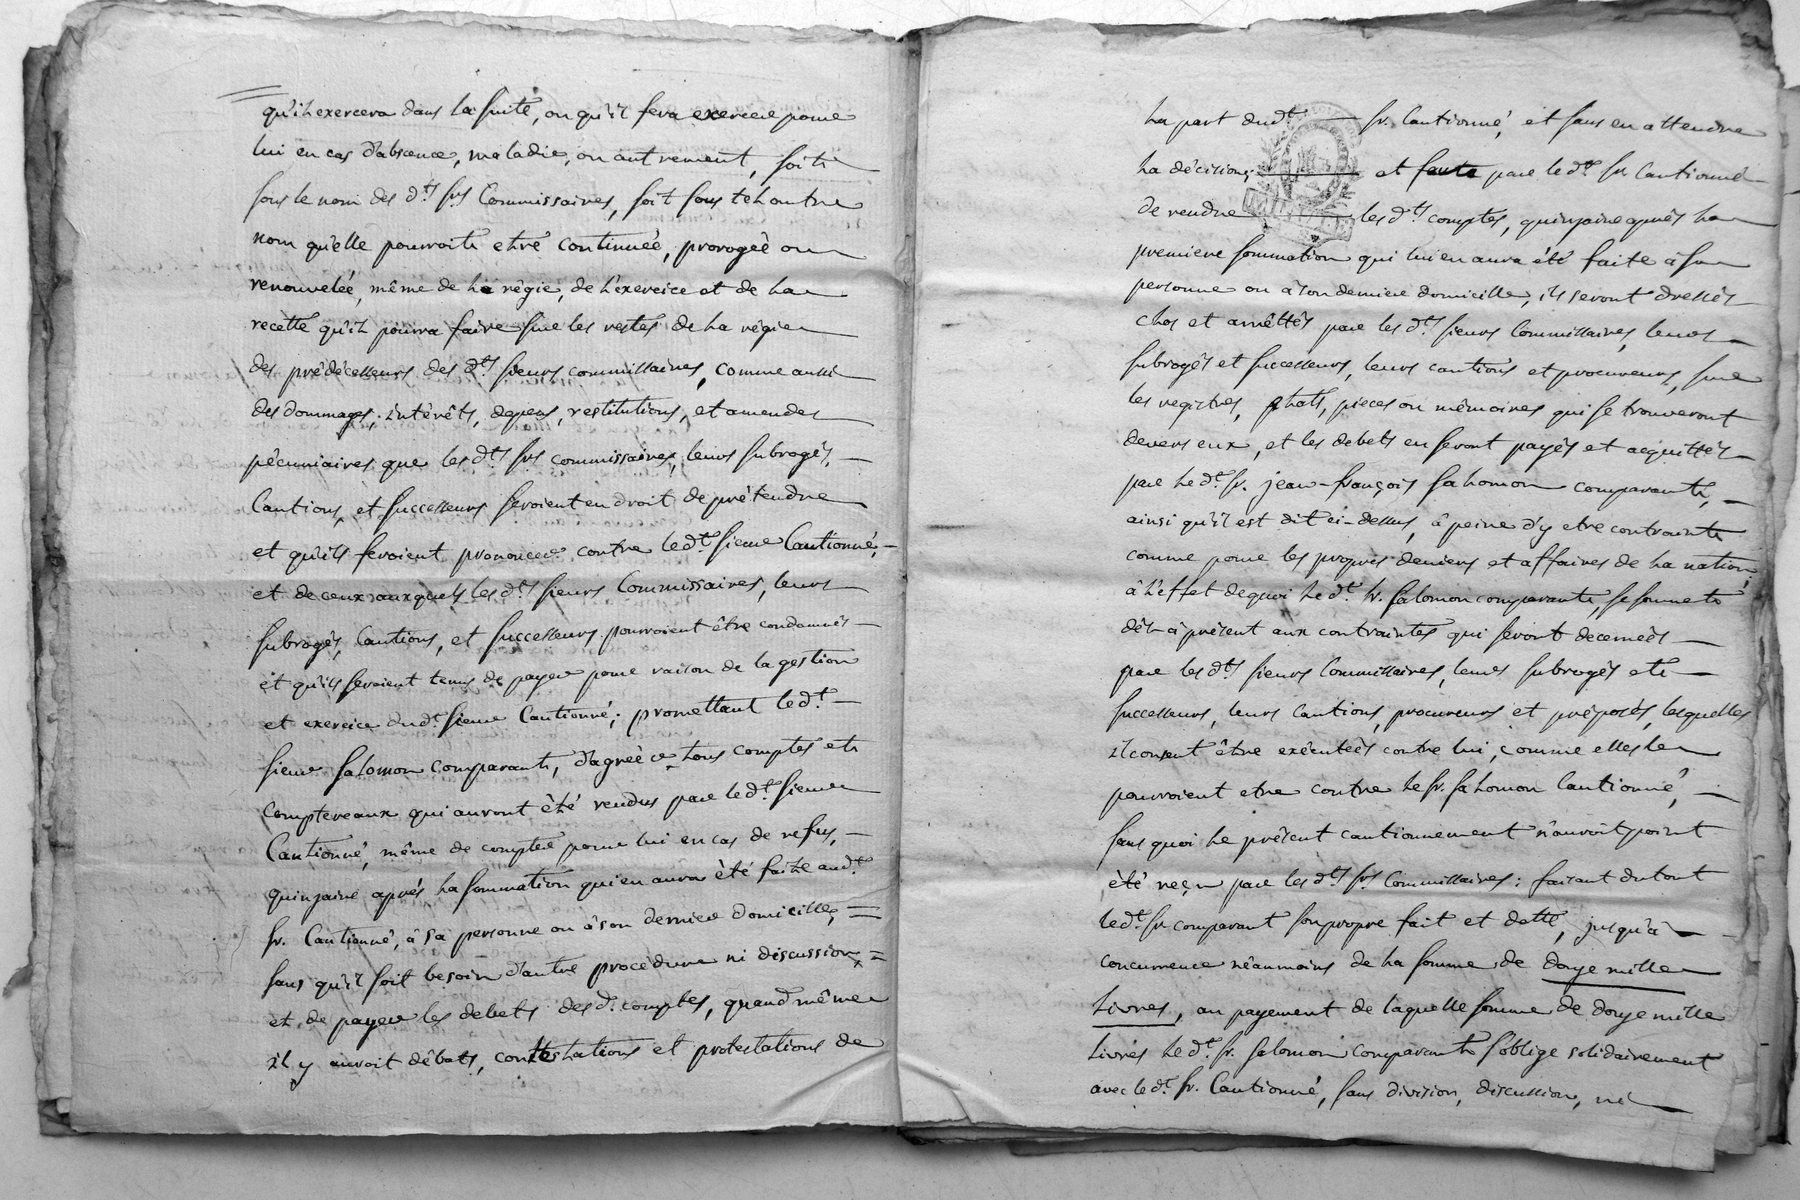 qu'il exercera dans la suite, ou qu'il fera exercer pour
lui en cas d'absence, maladie, ou autrement, soit
sous le nom des d.ts srs Commissaires, soit sous tel autre
nom qu'elle pourroit etre continuée, prorogée ou
renouvelée, même de la régie, de l'exercice et de la
recette qu'il pourra faire sur les restes de la régie
des prédécesseurs des d.ts sieurs commissaires, comme aussi
des dommages. intérêts, depens, restitutions, et amendes
pécuniaires que les d.ts srs commissaires, leurs subrogés,
Cautions, et successeurs seroient en droit de prétendre
et qu'ils feroient prononcer contre led.t sieur Cautionné,
et de ceux auxquels les d.ts sieurs Commissaires, leurs
subrogés, Cautions, et successeurs pourroient être condamnés
et qu'ils seroient tenus de payer pour raison de la gestion
et exercice dud.t sieur Cautionné; promettant led.t
sieur Salomon comparant, d'agréer tous comptes et
comptereaux qui auront été rendus par led.t sieur
Cautionné, même de compter pour lui en cas de refus,
quinzaine après la sommation qui en aura été faite aud.t
sr. Cautionné, à sa personne ou à son dernier domicille,
sans qu'il soit besoin d'autre procédure ni discussion,
et de payer les debets des d. comptes, quand même
il y auroit débats, contestations et protestations de
la part dud.t sr. Cautionné, et sans en attendre
la décision; et faute par led.t sr. Cautionné
de rendre les d.ts comptes, quinzaine après la
premiere sommation qui lui en aura été faite à sa
personne ou à son dernier domicille, ils seront dressés
clos et arrêttés par les d.ts sieurs Commissaires, leurs
subrogés et successeurs, leurs cautions et procureurs, sur
les registres, etats, pieces ou mémoires qui se trouveront
devers eux, et les debets en seront payés et acquittés
par led.t sr. jean-françois Salomon comparant,
ainsi qu'il est dit ci-dessus, à peine d'y etre contraint
comme pour les propres deniers et affaires de la nation;
à l'effet de quoi led.t sr. Salomon comparant, se soumet
dès-à présent aux contraintes qui seront decernées
par les d.ts sieurs Commissaires, leurs subrogés et
successeurs, leurs cautions, procureurs et préposés, lesquelles
il consent être exécutées contre lui, comme elles le
pourroient etre contre le sr. Salomon Cautionné,
sans quoi le présent cautionnement n'auroit point
été reçu par les d.ts srs Commissaires: faisant du tout
led.t sr comparant son propre fait et dette, jusqu'à
concurrence néanmoins de la somme de douze mille
livres, au payement de laquelle somme de douze mille
livres led.t sr. Salomon comparant s'oblige solidairement
avec led.t sr. Cautionné, sans division, discussion, ni